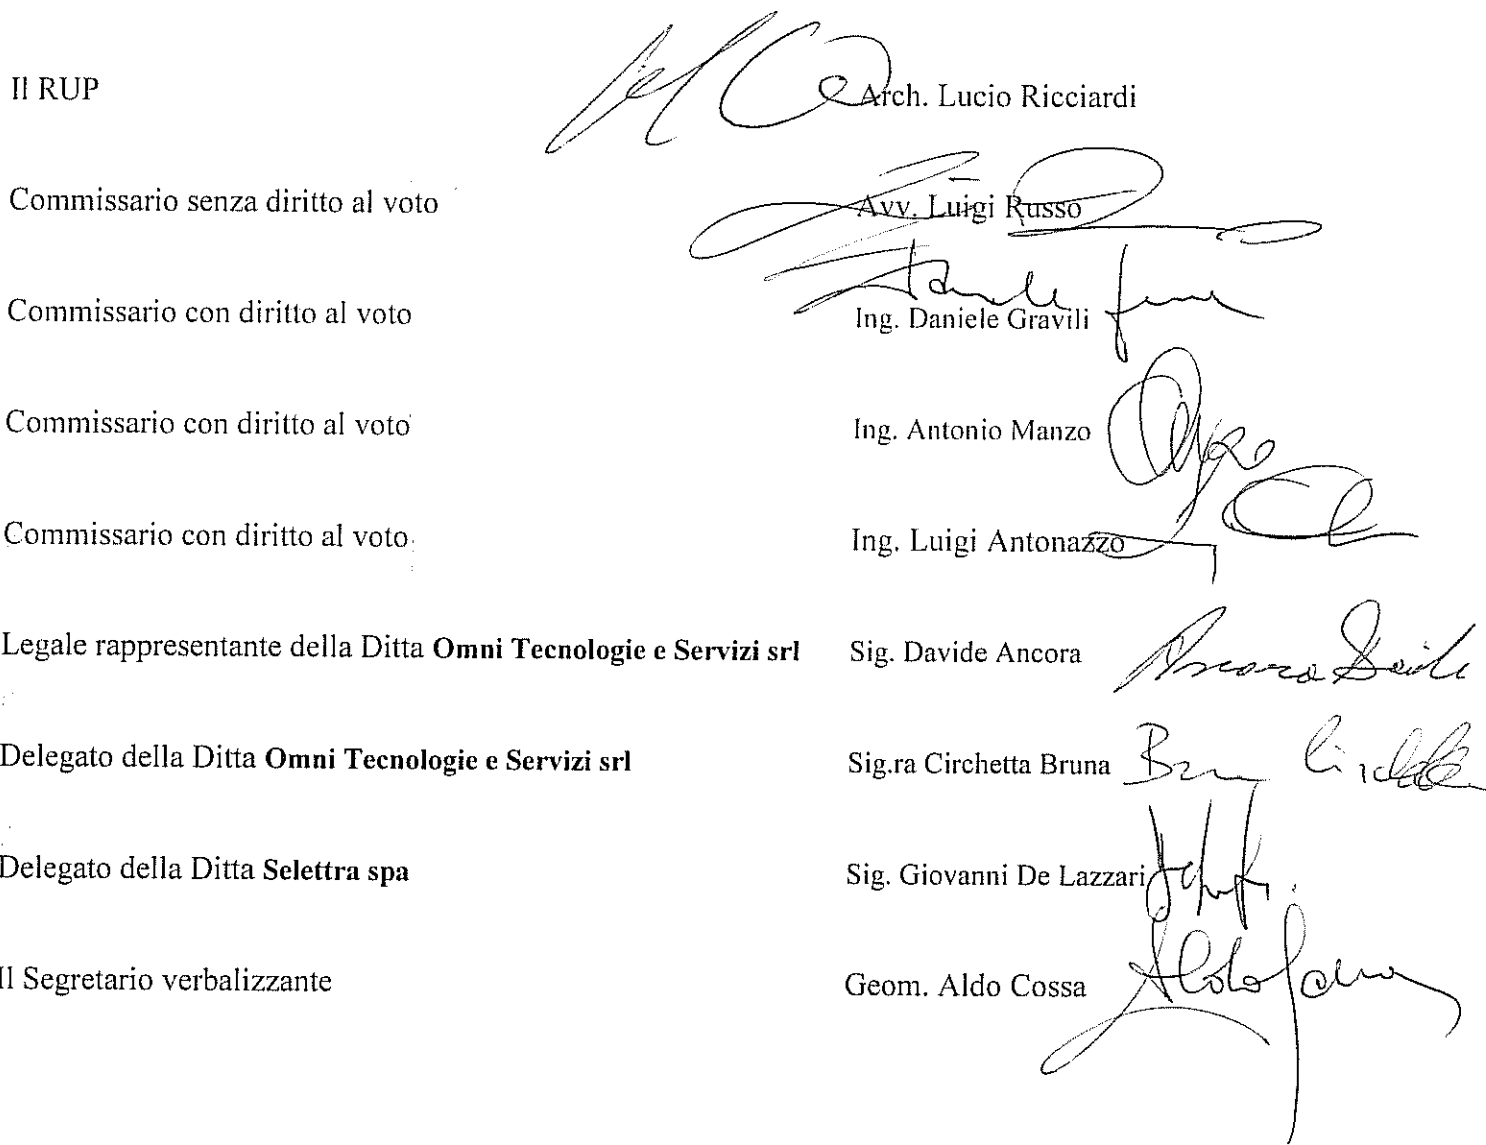 Il RUP Arch. Lucio Ricciardi
Commissario senza diritto al voto Avv. Luigi Russo
Commissario con diritto al voto Ing. Daniele Gravili
Commissario con diritto al voto Ing. Antonio Manzo
Commissario con diritto al voto Ing. Luigi Antonazzo
Legale rappresentante della Ditta Omni Tecnologie e Servizi srl Sig. Davide Ancora
Delegato della Ditta Omni Tecnologie e Servizi srl Sig.ra Circhetta Bruna
Delegato della Ditta Selettra spa Sig. Giovanni De Lazzari
Il Segretario verbalizzante Geom. Aldo Cossa